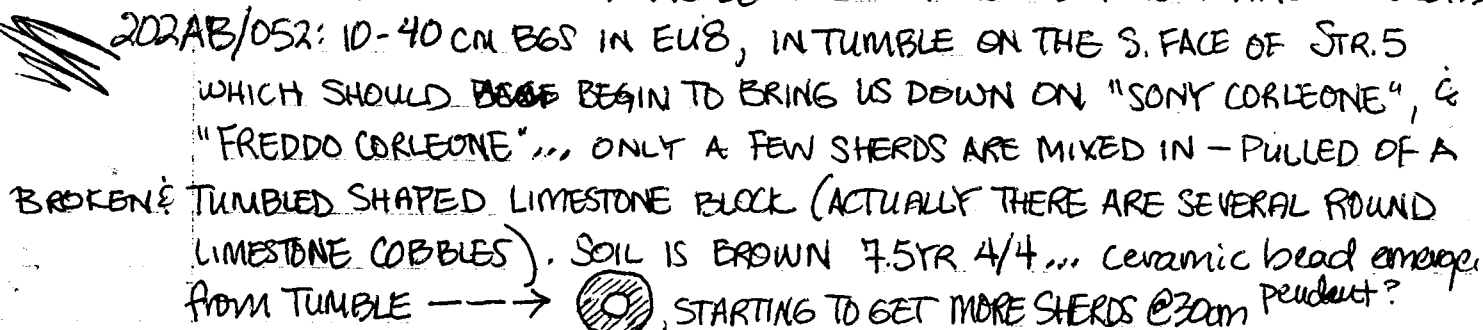 202AB/052: 10-40 CM BGS IN EU8, IN TUMBLE ON THE S. FACE OF STR. 5
WHICH SHOULD BEGIN TO BRING US DOWN ON "SONY CORLEONE", &
"FREDDO CORLEONE"... ONLY A FEW SHERDS ARE MIXED IN - PULLED OF A
BROKEN & TUMBLED SHAPED LIMESTONE BLOCK (ACTUALLY THERE ARE SEVERAL ROUND
LIMESTONE COBBLES). SOIL IS BROWN 7.5YR 4/4... ceramic bead emerge
from TUMBLE ---> , STARTING TO GET MORE SHERDS @30cm pendant?